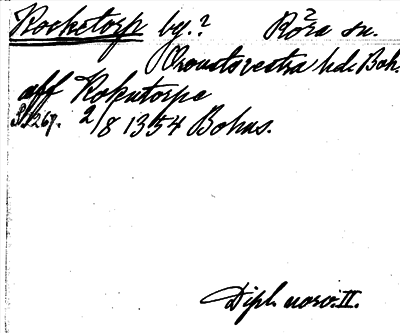 Rocketorp by.? Röra sn.
Orousts vestra hd. Boh.
aff Rokutorpe
3/1267. 2/8 1354 Bohus.
Dipl. norv. II.